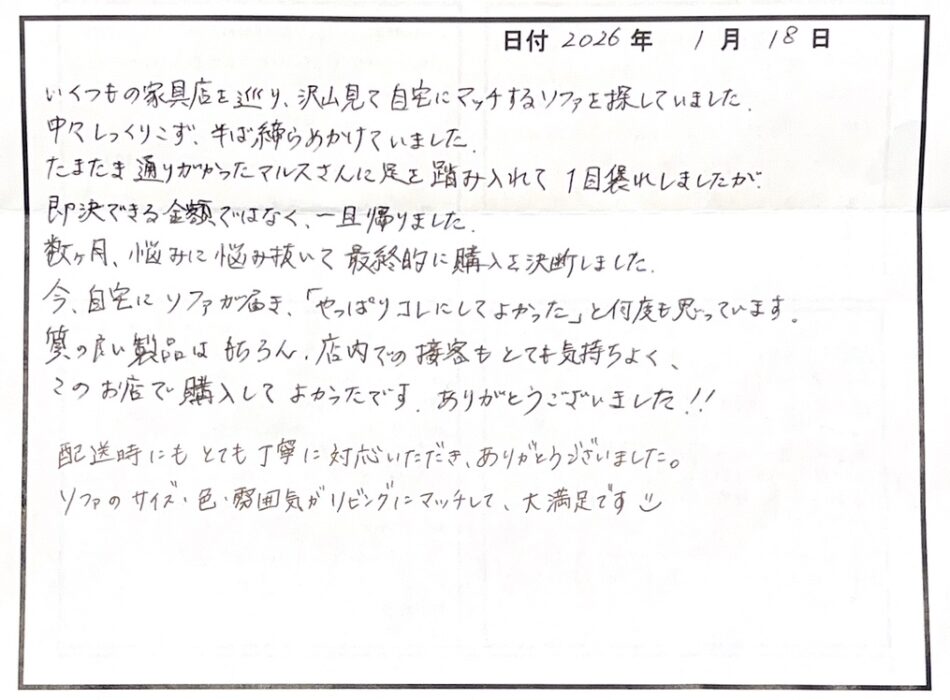 日付 2026年 1月 18日
いくつもの家具店を巡り、沢山見て自宅にマッチするソファを探していました。
中々しっくりこず、半ば締らめかけていました。
たまたま通りがかったマルスさんに足を踏み入れて1目惚れしましたが、
即決できる金額ではなく、一旦帰りました。
数ヶ月、悩みに悩み抜いて最終的に購入を決断しました。
今、自宅にソファが届き、「やっぱりコレにしてよかった」と何度も思っています。
質の良い製品はもちろん、店内での接客もとても気持ちよく、
このお店で購入してよかったです。ありがとうございました!!
配送時にもとても丁寧に対応いただき、ありがとうございました。
ソファのサイズ・色・雰囲気がリビングにマッチして、大満足です☺